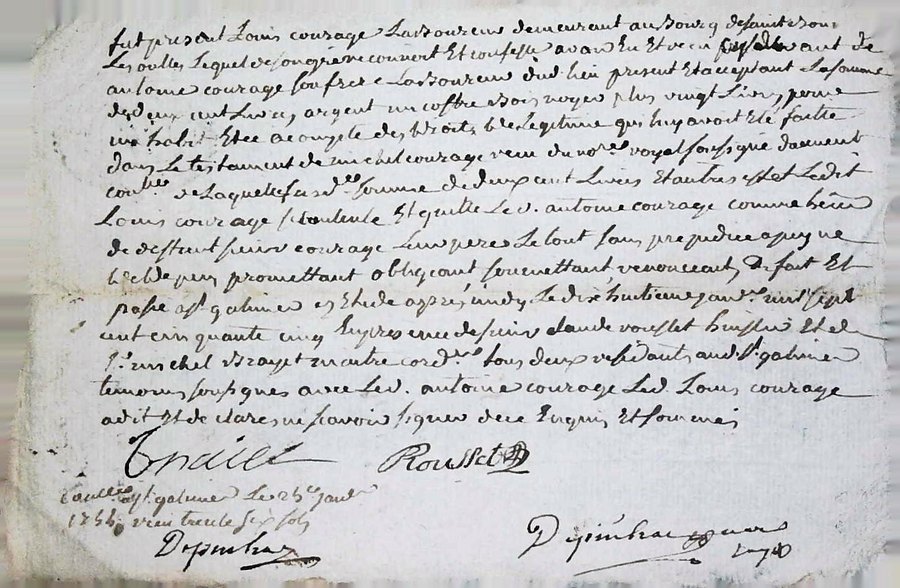 fut présent Louis courage Laboureur demeurant au bourg de saint
Les oulles Lequel de son gré reconnoit Et confesse avoir Eu Et receu de
antoine courage son frere Laboureur dud. lieu present Et acceptant La somme
de deux cent Livres argent un coffre bois noyer plus vingt Livres pour
un habit Et ce a compte des droits de Legitime que luy avoit Eté faitte
dans Le testament de michel courage receu du nore. royal soussigné
de Laquelle susde. somme de deux cent Livres Et autres Ledit
Louis courage se contente Et quitte Led. antoine courage comme herit
de deffunt courage Leur pere Le tout sans prejudice
promettant obligeant soumettant renonceant, De fait Et
passé a st. galmier Etude apres midy Le dix huitieme janvr. mil sept
cent cinquante cinq En presence de sieur claude rousset huissier Et de
sr. michel maitre cordr. tous deux residants aud. st. galmier
temoins soussignes avec Led. antoine courage Led. Louis courage
a dit Et declaré ne sçavoir signer de ce Enquis Et sommé
Rousset
a st. galmier Le 25e janvr
1755 receu trente six sols
Depinhac
Depinhac